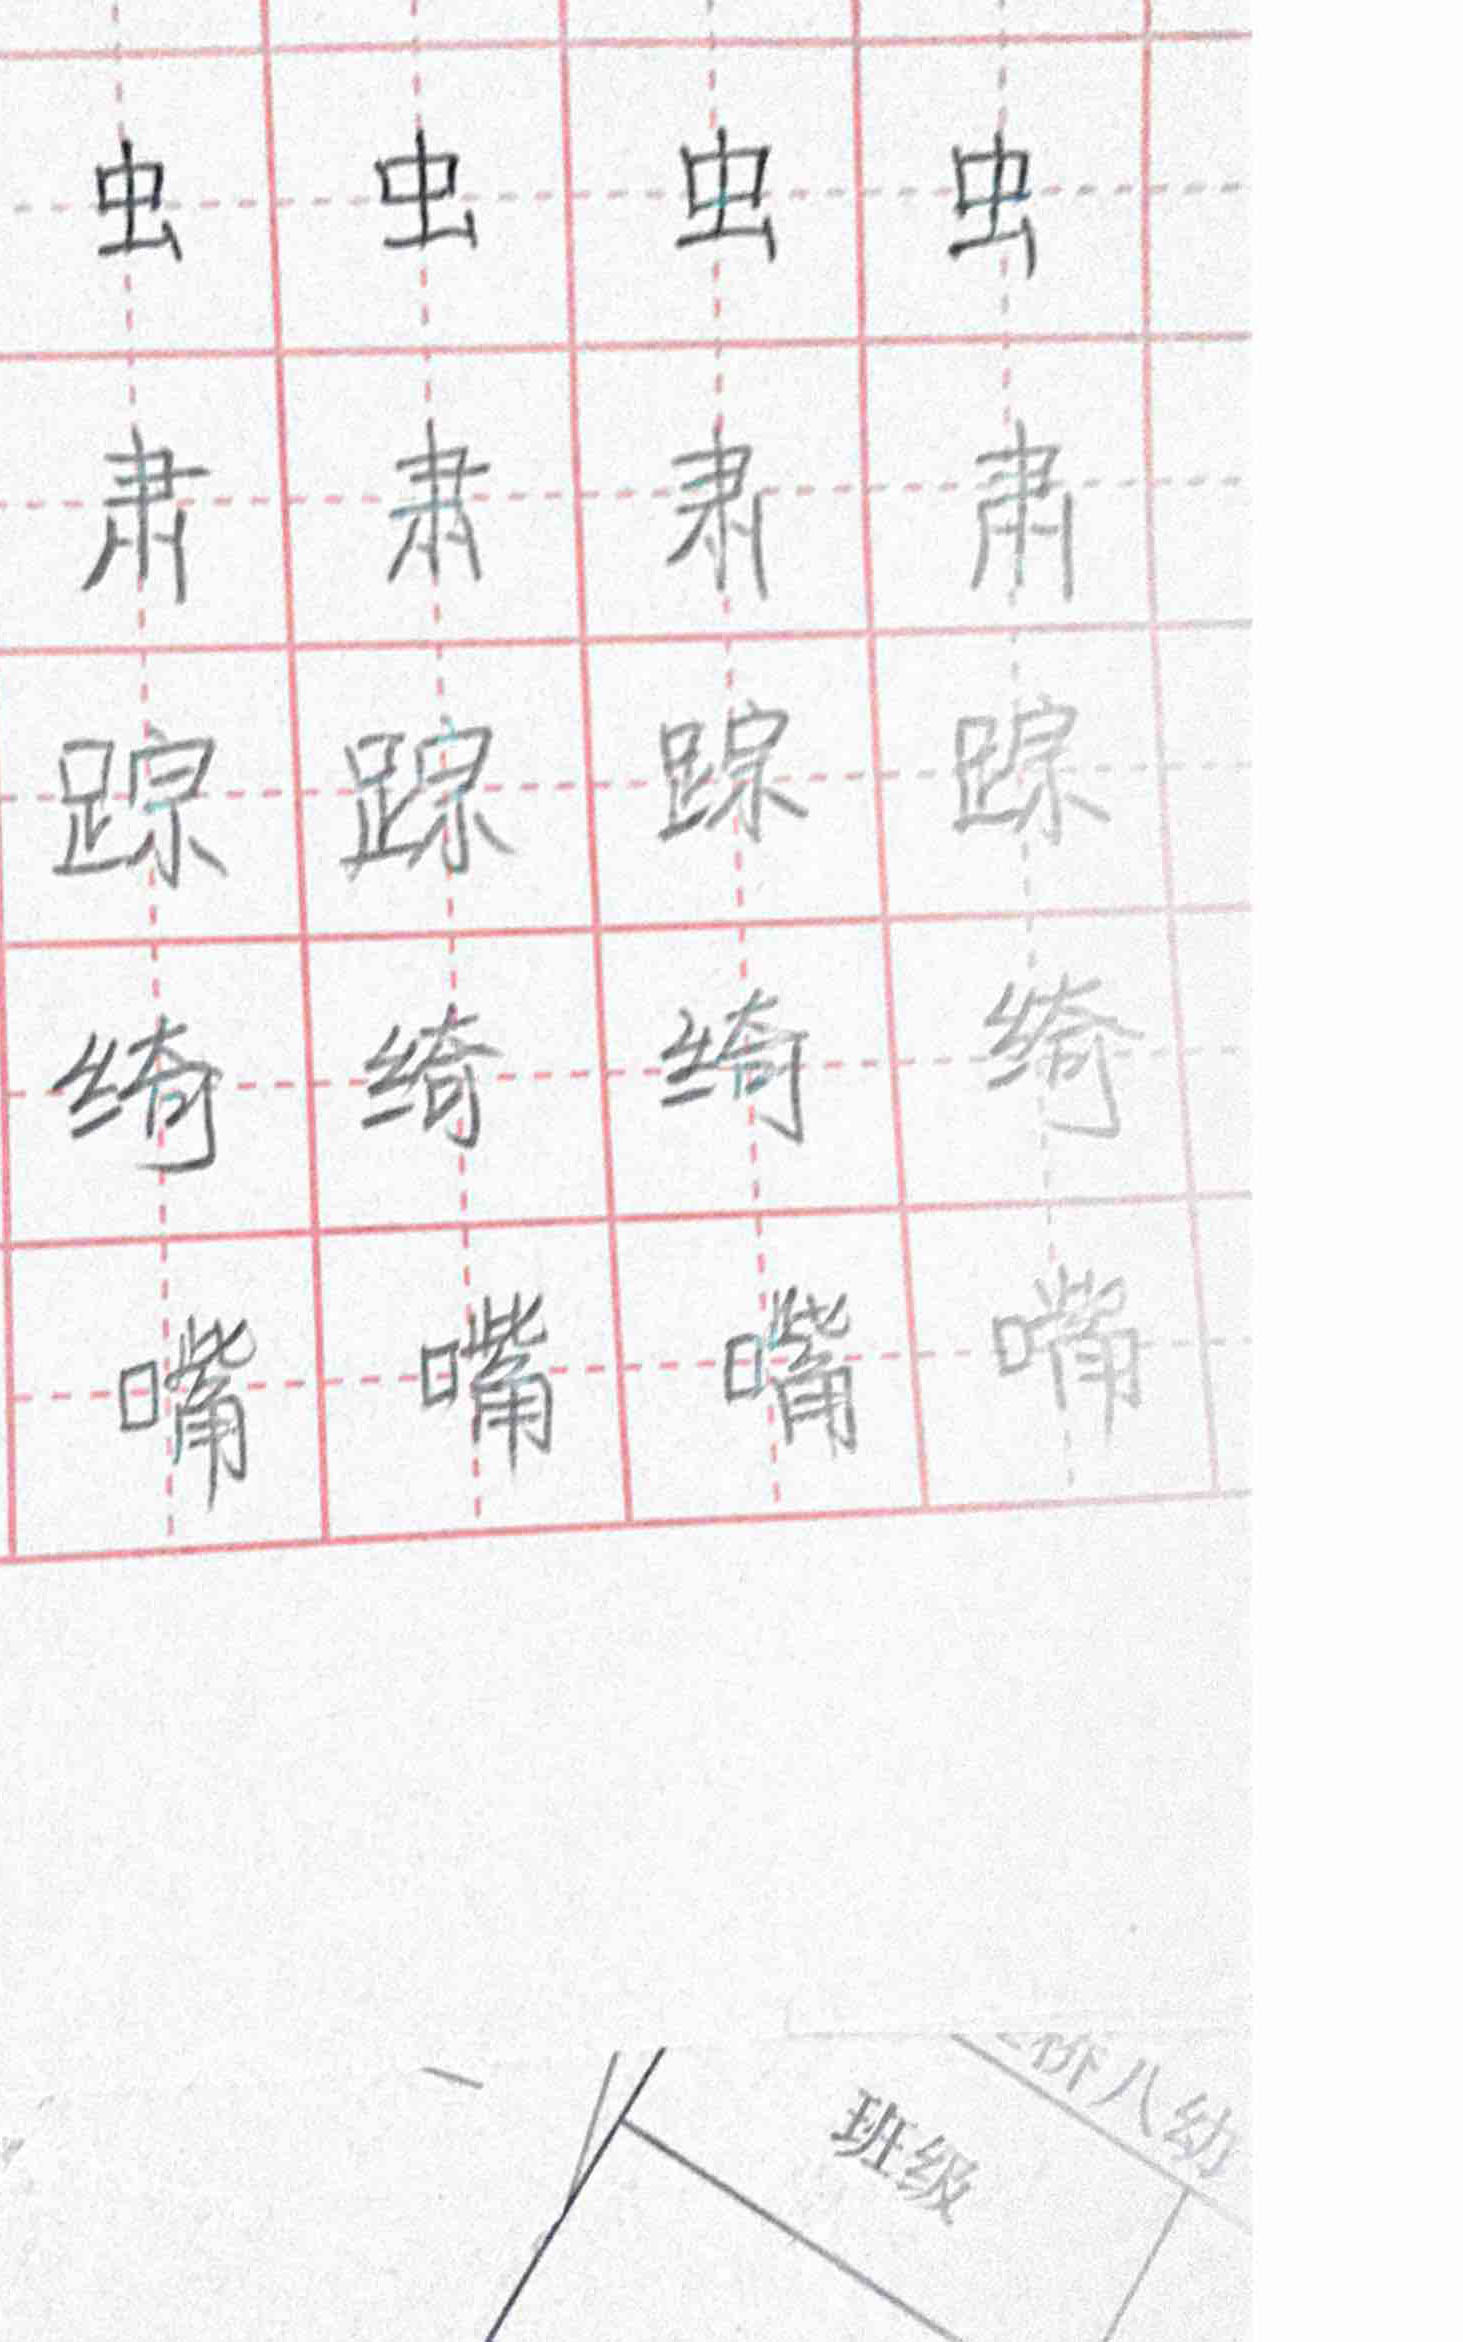 虫 虫 虫 虫
肃 肃 肃 肃
踪 踪 踪 踪
绮 绮 绮 绮
嘴 嘴 嘴 嘴
阶八幼
班级